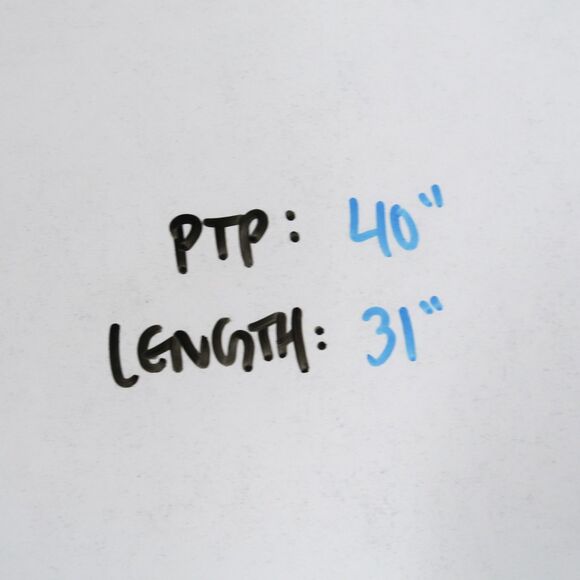 PTP: 40"
LENGTH: 31"